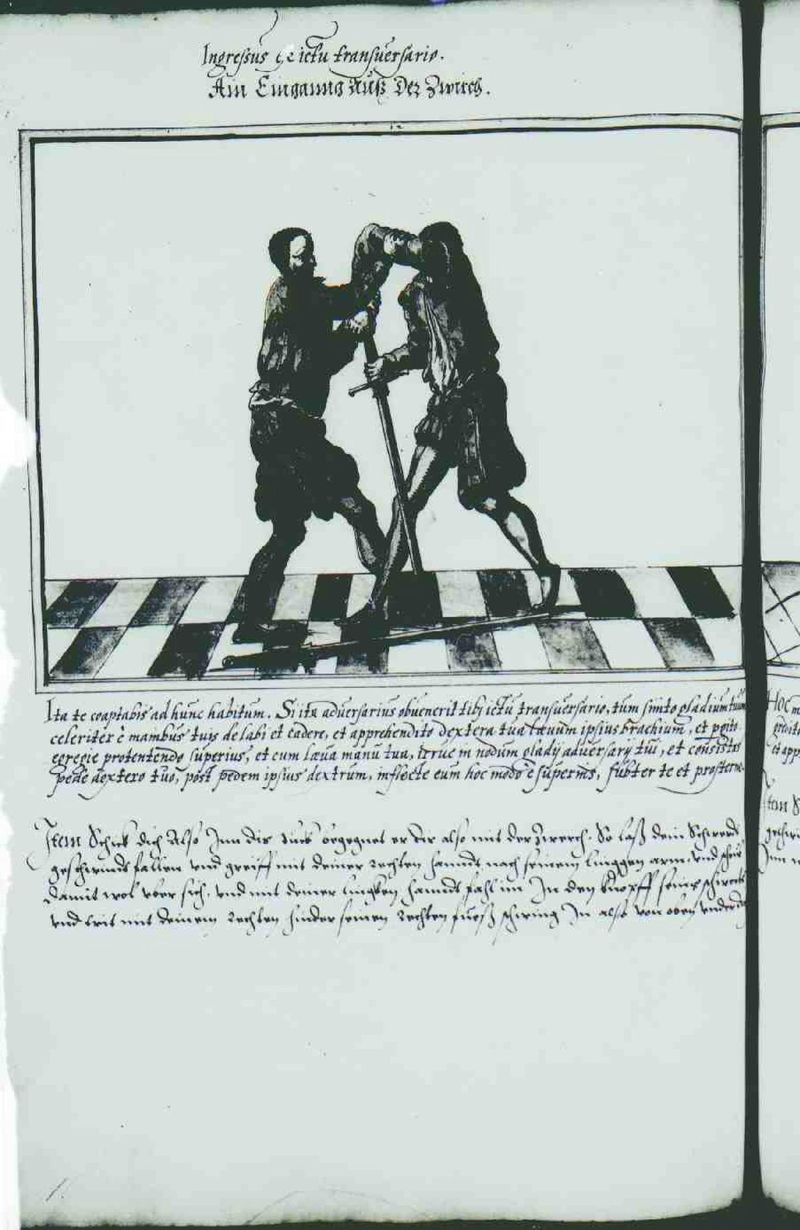 Ingressus ex ictu transversario.
Ain Einganng Auß Der Zwirch.
Ita te coaptabis ad hunc habitum. Si ita adversarius obvenerit tibj ictu transversario, tum sinito gladium tuum
celeriter è manibus tuis delabi et cadere, et apprehendito dextera tua laevum ipsius brachium, et
egregie protentendo superius, et cum laeva manu tua, irrue in nodum gladij adversarij tui, et consistas
pede dextero tuo, post pedem ipsius dextrum, inflecte eum hoc modo è supernis, subter te et
Item Schick dich Also Inn dis begegnet er dir also mit der Zwerch. So laß dein Schwerdt
geschwindt fallen und greiff mit deiner rechten handt nach seinem linggen arm und
damit wol uber sich, und mit deiner lingken handt fahl im In den knopff seines
und trit mit deinem rechten hinder seinen rechten fueß schwing In also von oben